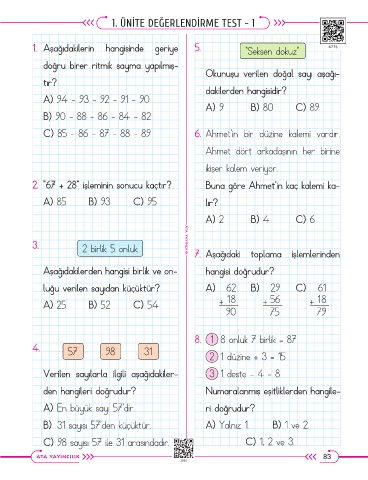 1. ÜNİTE DEĞERLENDİRME TEST - 1
1. Aşağıdakilerin hangisinde geriye
doğru birer ritmik sayma yapılmış-
tır?
A) 94 - 93 - 92 - 91 - 90
B) 90 - 88 - 86 - 84 - 82
C) 85 - 86 - 87 - 88 - 89
2. "67 + 28" işleminin sonucu kaçtır?
A) 85 B) 93 C) 95
3. 2 birlik 5 onluk
Aşağıdakilerden hangisi birlik ve on-
luğu verilen sayıdan küçüktür?
A) 25 B) 52 C) 54
4. 57 98 31
Verilen sayılarla ilgili aşağıdakiler-
den hangileri doğrudur?
A) En büyük sayı 57'dir.
B) 31 sayısı 57'den küçüktür.
C) 98 sayısı 57 ile 31 arasındadır.
5. "Seksen dokuz"
Okunuşu verilen doğal sayı aşağı-
dakilerden hangisidir?
A) 9 B) 80 C) 89
6. Ahmet'in bir düzine kalemi vardır.
Ahmet dört arkadaşının her birine
ikişer kalem veriyor.
Buna göre Ahmet'in kaç kalemi ka-
lır?
A) 2 B) 4 C) 6
7. Aşağıdaki toplama işlemlerinden
hangisi doğrudur?
A) 62 B) 29 C) 61
+ 18 + 56 + 18
90 75 79
8. 1 8 onluk 7 birlik = 87
2 1 düzine + 3 = 15
3 1 deste - 4 = 8
Numaralanmış eşitliklerden hangile-
ri doğrudur?
A) Yalnız 1. B) 1 ve 2.
C) 1, 2 ve 3.
ATA YAYINCILIK
83